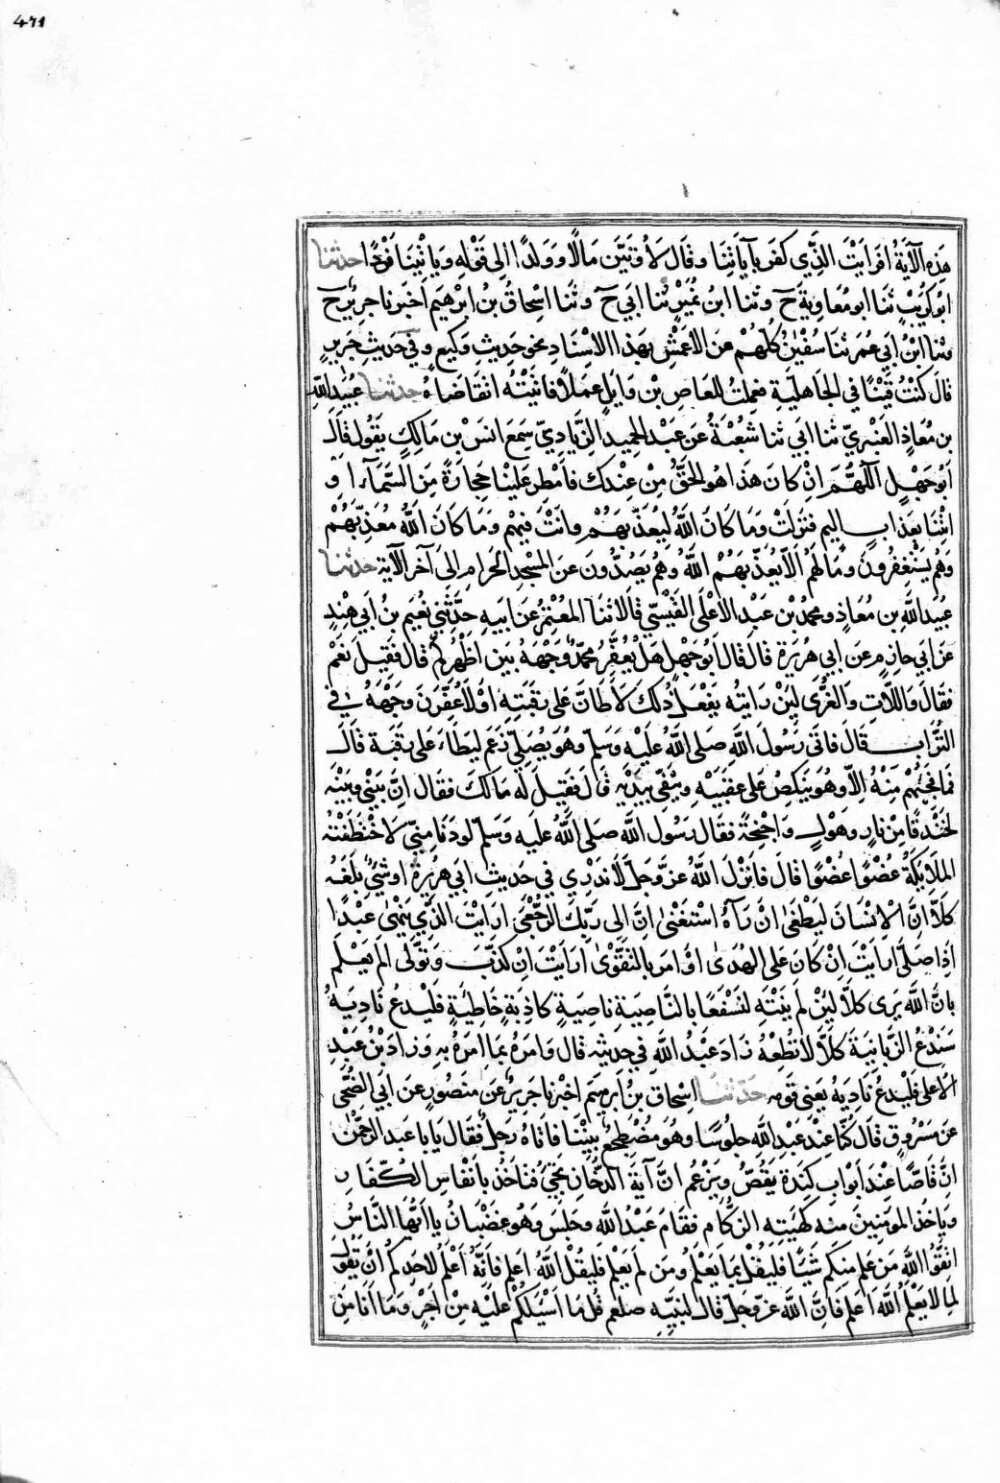 471
هذه الآية افرايت الذي كفر بآياتنا وقال لأوتين مالا وولدا الى قوله ويأتينا فردا حدثنا
ابو كريب ثنا ابو معاوية ح وثنا ابن نمير ثنا ابي ح وثنا اسحاق بن ابرهيم اخبرنا جرير ح
وثنا ابن ابي عمر ثنا سفين كلهم عن الاعمش بهذا الاسناد نحو حديث وكيع وفي حديث جرير
قال كنت قينا في الجاهلية فعملت للعاص بن وايل عملا فاتيته اتقاضاه حدثنا عبيد الله
بن معاذ العنبري ثنا ابي ثنا شعبة عن عبد الحميد الزيادي سمع انس بن مالك يقول قال
ابو جهل اللهم ان كان هذا هو الحق من عندك فامطر علينا حجارة من السماء او
ائتنا بعذاب اليم فنزلت وما كان الله ليعذبهم وانت فيهم وما كان الله معذبهم
وهم يستغفرون وما لهم الا يعذبهم الله وهم يصدون عن المسجد الحرام الى آخر الآية حدثنا
عبيد الله بن معاذ ومحمد بن عبد الاعلى القيسي قالا ثنا المعتمر عن ابيه حدثني نعيم بن ابي هند
عن ابي حازم عن ابي هريرة قال قال ابو جهل هل يعفر محمد وجهه بين اظهركم قال فقيل نعم
فقال واللات والعزى لين رايته يفعل ذلك لاطان على رقبته او لاعفرن وجهه في
التراب قال فاتى رسول الله صلى الله عليه وسلم وهو يصلي زعم ليطاء على رقبة قال
فما فجئهم منه الا وهو ينكص على عقبيه ويتقي بيديه قال فقيل له مالك فقال ان بيني وبينه
لخندقا من نار وهول واجنحة فقال رسول الله صلى الله عليه وسلم لو دنا مني لاختطفته
الملايكة عضوا عضوا قال فانزل الله عز وجل لا ندري في حديث ابي هريرة او شي بلغه
كلا ان الانسان ليطغى ان رآه استغنى ان الى ربك الرجعى ارايت الذي ينهى عبدا
اذا صلى ارايت ان كان على الهدى او امر بالتقوى ارايت ان كذب وتولى الم يعلم
بان الله يرى كلا لين لم ينته لنسفعا بالناصية ناصية كاذبة خاطئة فليدع ناديه
سندع الزبانية كلا لا تطعه زاد عبيد الله في حديثه قال وامره بما امره به وزاد بن عبد
الاعلى فليدع ناديه يعني قومه حدثنا اسحاق بن ابرهيم اخبرنا جرير عن منصور عن ابي الضحى
عن مسروق قال كنا عند عبد الله جلوسا وهو مضطجع بيننا فاتاه رجل فقال يابا عبد الرحمن
ان قاصا عند ابواب كندة يقص ويزعم ان آية الدخان تجيء فتاخذ بانفاس الكفار
وياخذ المؤمنين منه كهيئة الزكام فقام عبد الله وجلس وهو غضبان يا ايها الناس
اتقوا الله من علم منكم شيا فليقل بما يعلم ومن لم يعلم فليقل الله اعلم فانه اعلم لاحدكم ان يقول
لما لا يعلم الله اعلم فان الله عز وجل قال لنبيه صلعم قل ما اسئلكم عليه من اجر وما انا من